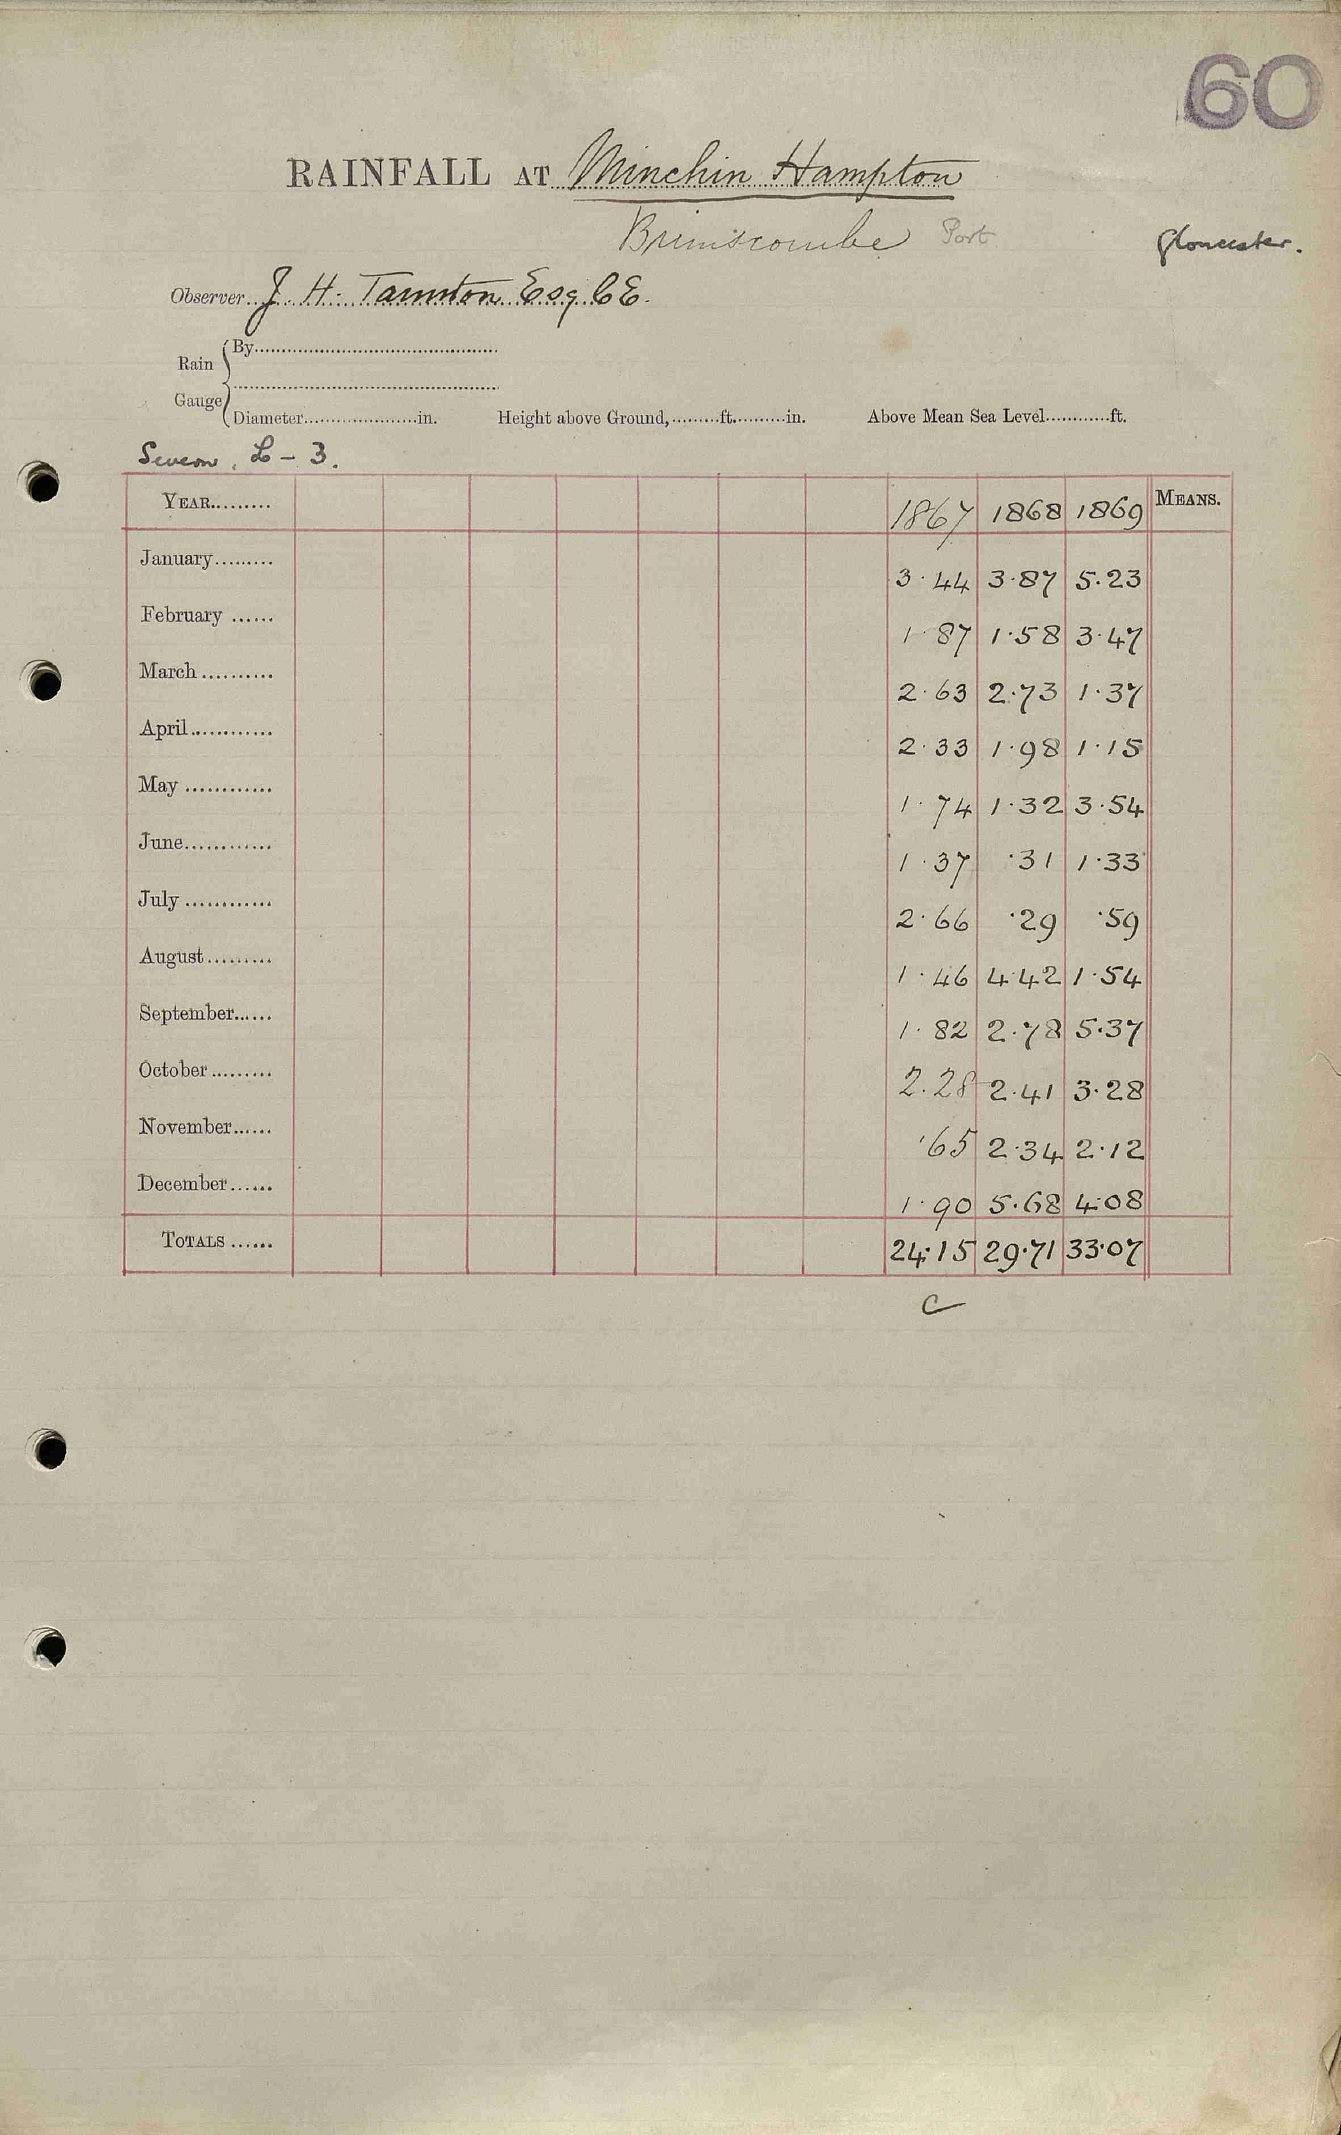 60
RAINFALL AT Minchin Hampton
Brimscombe Port Gloucester.
Observer J. H. Taunton Esq C E.
Rain Gauge
By
Diameter in. Height above Ground, ft. in. Above Mean Sea Level ft.
Severn, L - 3.
YEAR 1867 1868 1869 MEANS.
January 3.44 3.87 5.23
February 1.87 1.58 3.47
March 2.63 2.73 1.37
April 2.33 1.98 1.15
May 1.74 1.32 3.54
June 1.37 .31 1.33
July 2.66 .29 .59
August 1.46 4.42 1.54
September 1.82 2.78 5.37
October 2.28 2.41 3.28
November .65 2.34 2.12
December 1.90 5.68 4.08
TOTALS 24.15 29.71 33.07
C